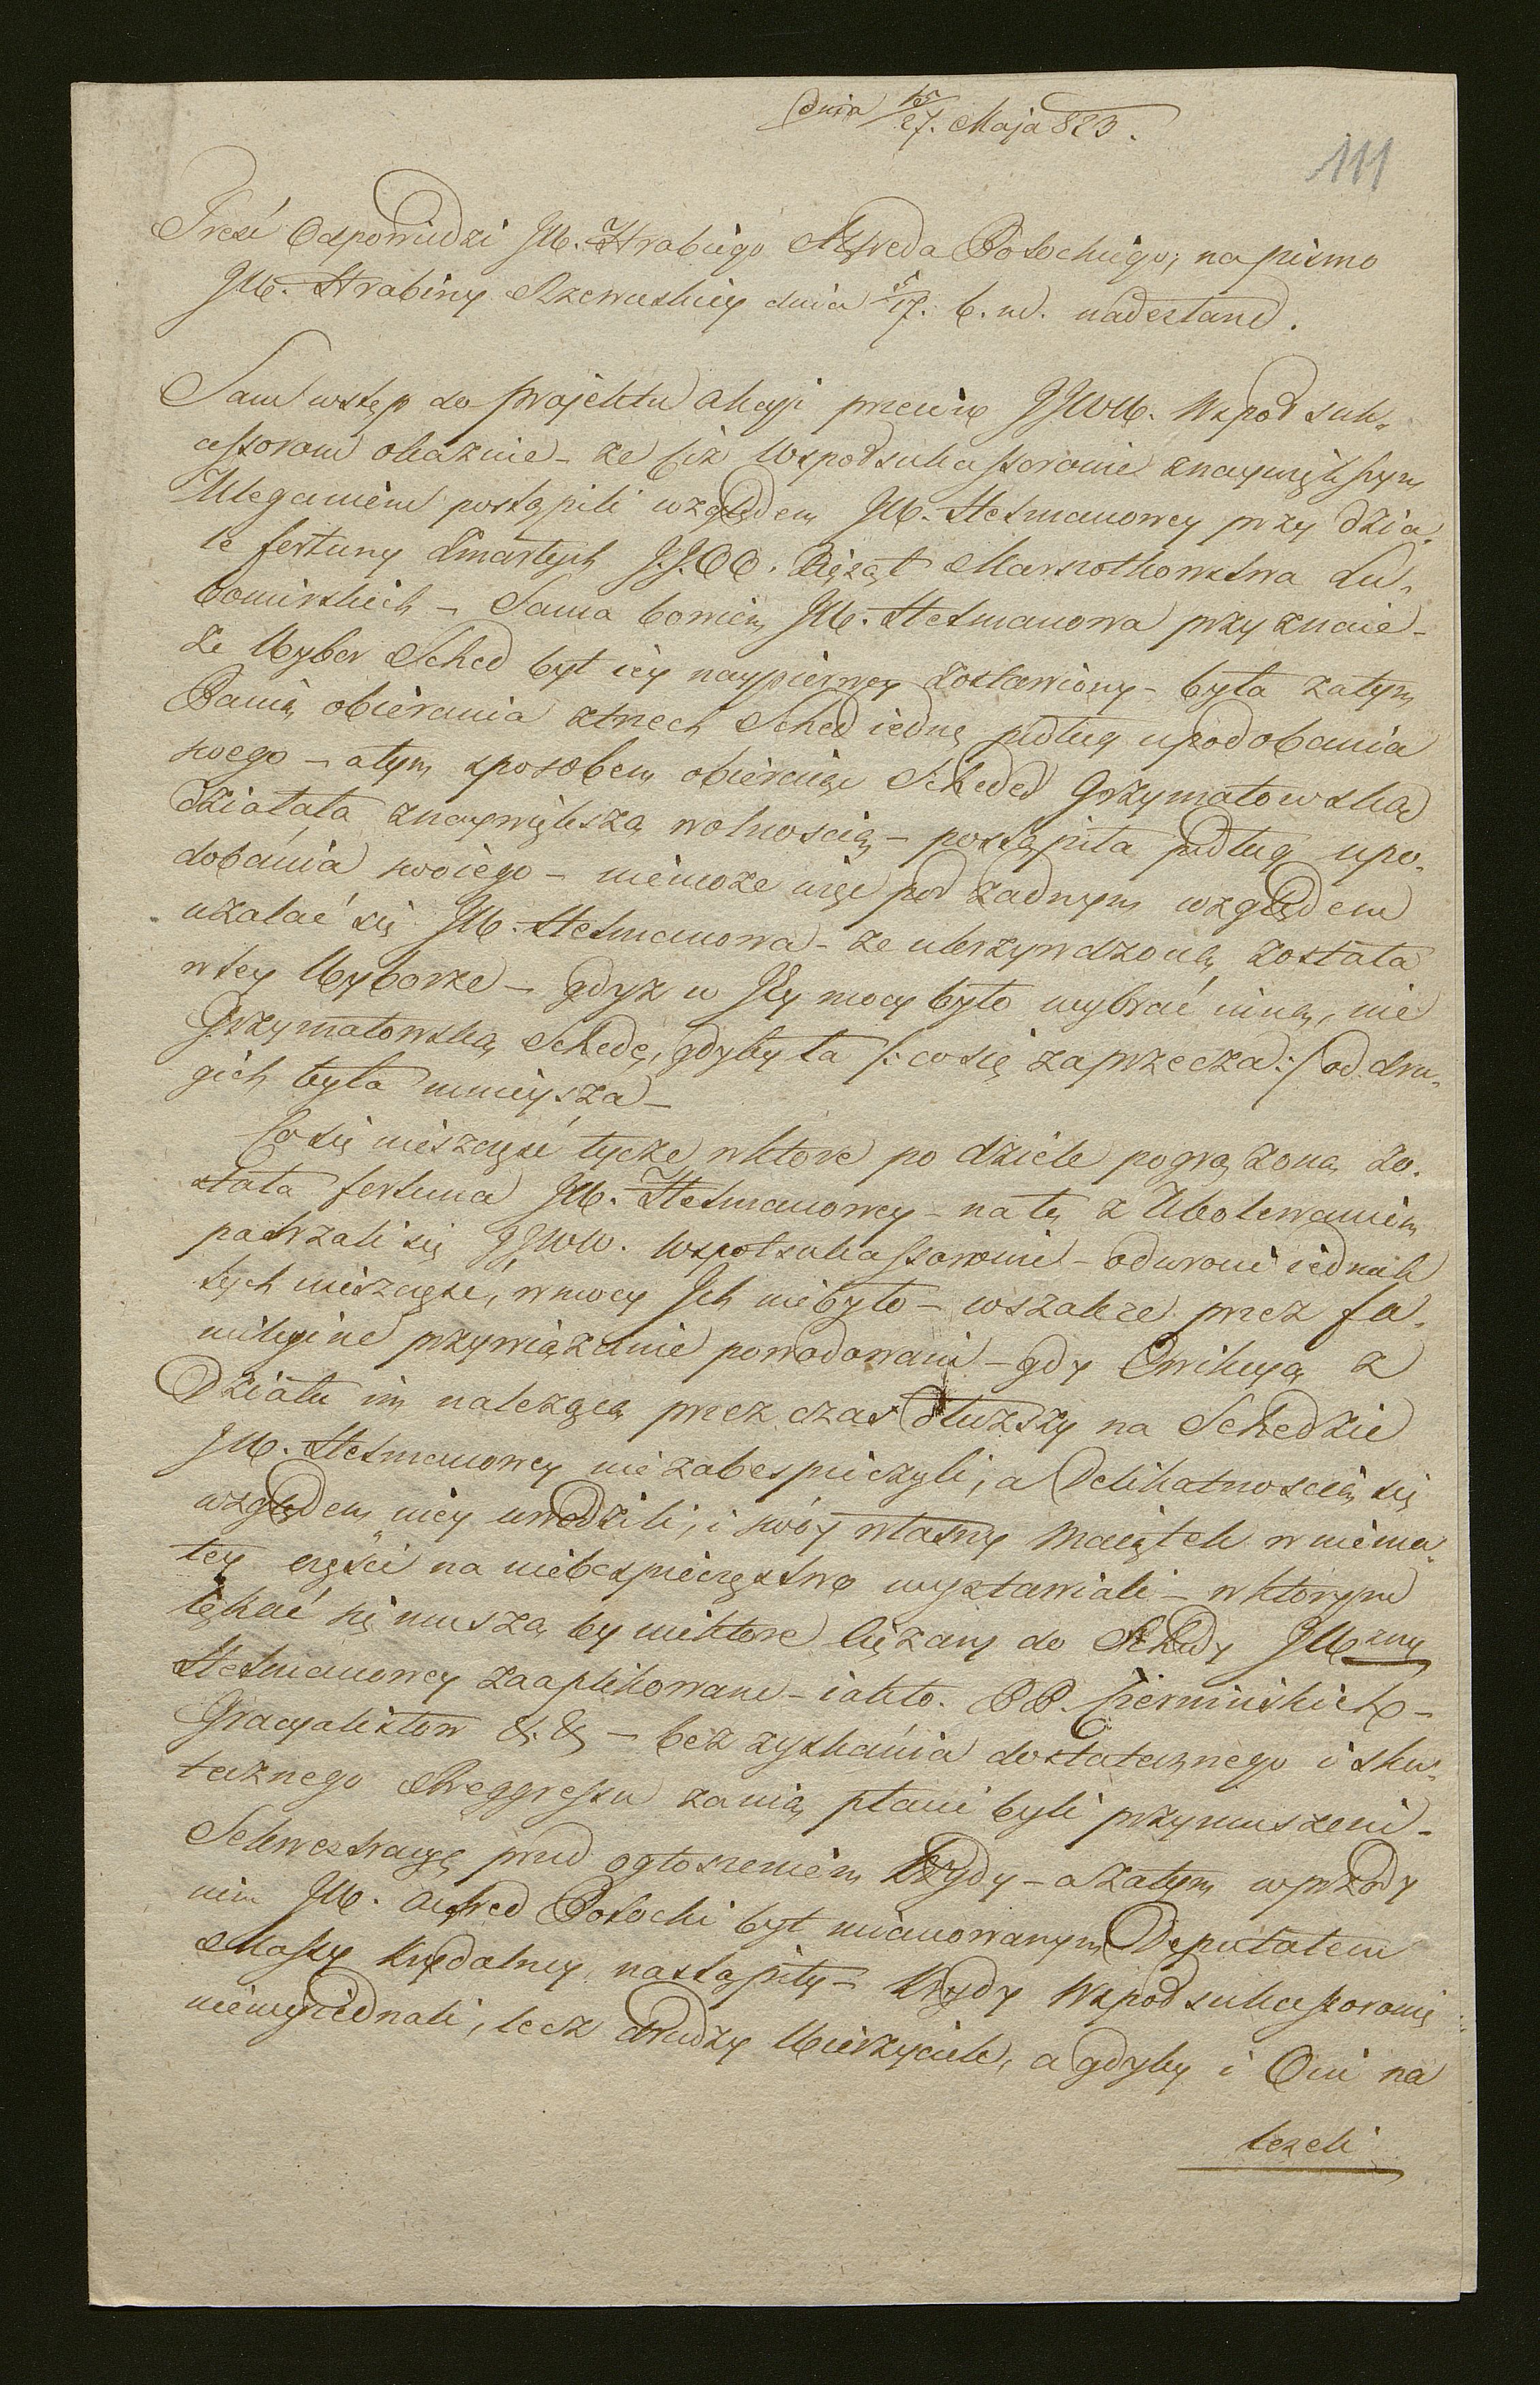 dnia 15/27. Maja 823.
111
Treść Odpowiedzi JW. Hrabiego Alfreda Potockiego, na pismo
JW. Hrabiny Rzewuskiey dnia 5/17. b. m. nadesłane.
Sam wstęp do projektu akcyi przeciw JJWW. Wspoł suk-
cessorom okazuie - że ciż Wspołsukcessorowie znaywiększym
Uleganiem postąpili względem JW. Hetmanowey przy dzia-
le fortuny Zmarłych J.J.OO. Xiążąt Marszałkowstwa Lu-
bomirskich - Sama bowiem JW. Hetmanowa przyznaie -
że Wybor Sched był iey naypierwey zostawiony - była zatym
Panią obierania ztrzech Sched iedną podług upodobania
swego - a tym sposobem obieraiąc Schedę Grzymałowską
działała znaywiększą wolnością - postąpiła podług upo-
dobania swoiego - niemoże więc pod żadnym względem
użalać się JW. Hetmanowa - że ukrzywdzoną została
wtey Wyborze - gdyż w Jey mocy było wybrać inną, nie
Grzymałowską Schedę, gdyby ta /: co się zaprzecza :/ od dru-
gich była mnieysza -
Co się nieszczęść tycze wktore po dziele pogrążoną zo-
stała fortuna JW. Hetmanowey - na tę z Ubolewaniem
patrzali się JJWW. Wspołsukcessorowie - odwrocić iednak
tych nieszczęść, w mocy Ich niebyło - wszakże przez fa-
milyine przywiązanie powodowani - gdy Ewikcyą z
Działu im należącą przez czas dłuższy na Schedzie
JW. Hetmanowey nie zabespieczyli, a Delikatnością się
względem niey uwodzili, i swóy własny Maiątek w niema-
łey części na niebespieczęstwo wystawiali - w ktorym
lękać się muszą by niektore ciężary do Schedy JWzney
Hetmanowey zaaplikowane - iako to. PP. Cieminskich -
Gracyalistow &. & - bez zyskania dostatecznego i sku-
tecznego Regressu za nią płacić byli przymuszeni -
Sekwestracyę przed ogłoszeniem Krydy - a zatym wprzódy
nim JW. Alfred Potocki był mianowanym Deputatem
Massy Krydalney, nastąpiły - Krydy Wspołsukcessorowie
niewyiednali, lecz drudzy Wierzyciele, a gdyby i Oni na
leżeli